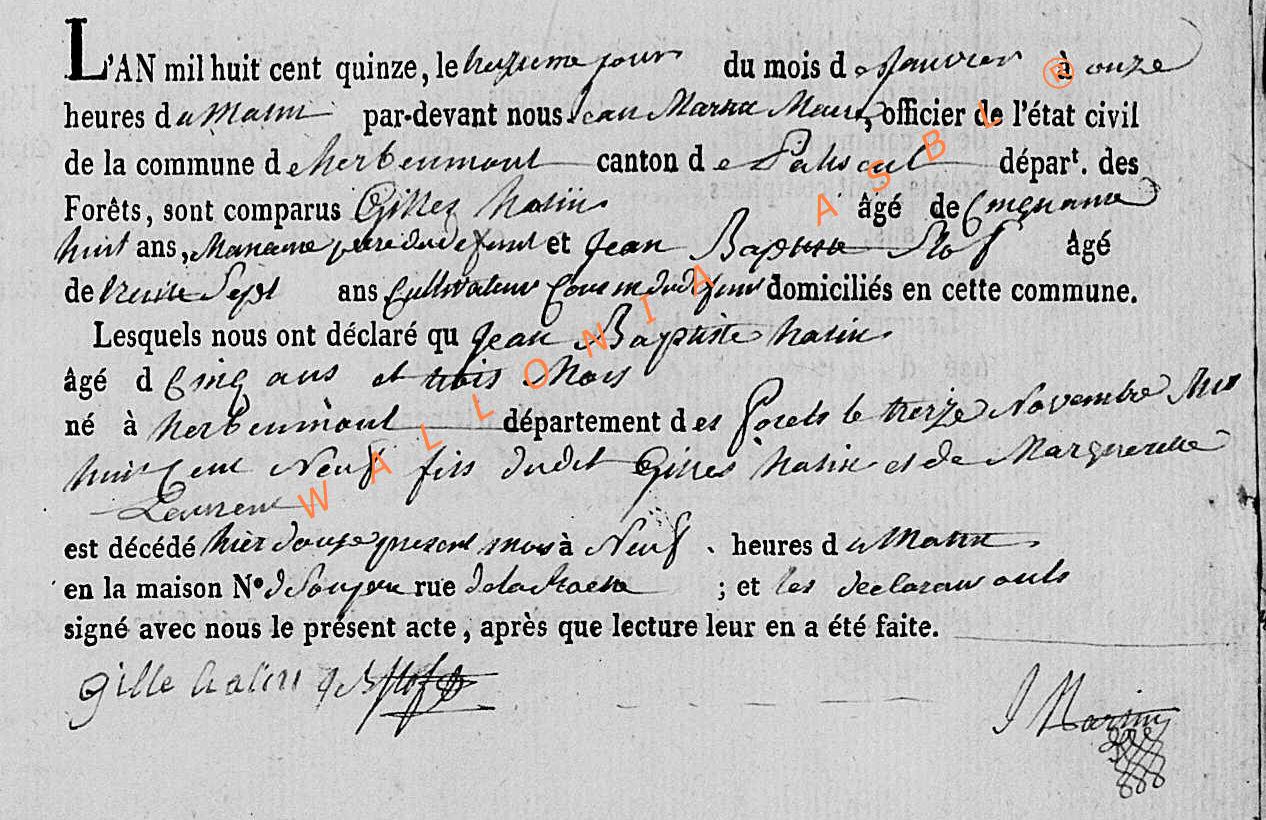 L'AN mil huit cent quinze, le treizieme jour du mois de Janvier à onze
heures du Matin par-devant nous Jean Martin Maire, officier de l'état civil
de la commune de herbeumont canton de Paliseul départ. des
Forêts, sont comparus Gilles halin âgé de Cinquante
huit ans, pere du defunt et Jean Baptiste Slof âgé
de trente Sept ans Cultivateur Cousin du defunt domiciliés en cette commune.
Lesquels nous ont déclaré qu Jean Baptiste halin
âgé d Cinq ans et trois Mois
né à herbeumont département des forets le treize Novembre Mil
huit Cent Neuf fils dudit Gilles halin et de Margueritte
Laurent
est décédé hier douze present mois à Neuf heures du Matin
en la maison Nº rue de la ; et les declarans onts
signé avec nous le présent acte, après que lecture leur en a été faite.
gille halin J B Slof
J Martin
WALLONIA ASBL ®